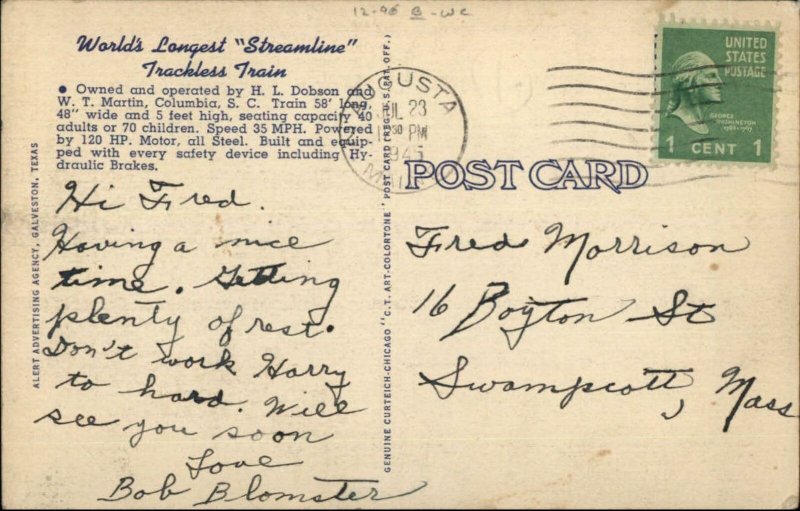 12-96 B-WC
World's Longest "Streamline"
Trackless Train
• Owned and operated by H. L. Dobson and
W. T. Martin, Columbia, S. C. Train 58' long,
48" wide and 5 feet high, seating capacity 40
adults or 70 children. Speed 35 MPH. Powered
by 120 HP. Motor, all Steel. Built and equip-
ped with every safety device including Hy-
draulic Brakes.
ALERT ADVERTISING AGENCY, GALVESTON, TEXAS
Hi Fred.
Having a nice
time. Getting
plenty of rest.
Don't work Harry
to hard. Will
see you soon
Love
Bob Blomster
GENUINE CURTEICH-CHICAGO "C.T. ART-COLORTONE" POST CARD (REG. U.S. PAT. OFF.)
AUGUSTA
JUL 23
30 PM
1945
POST CARD
UNITED
STATES
POSTAGE
GEORGE
WASHINGTON
1 CENT 1
Fred Morrison
16 Boyton St
Swampscott, Mass